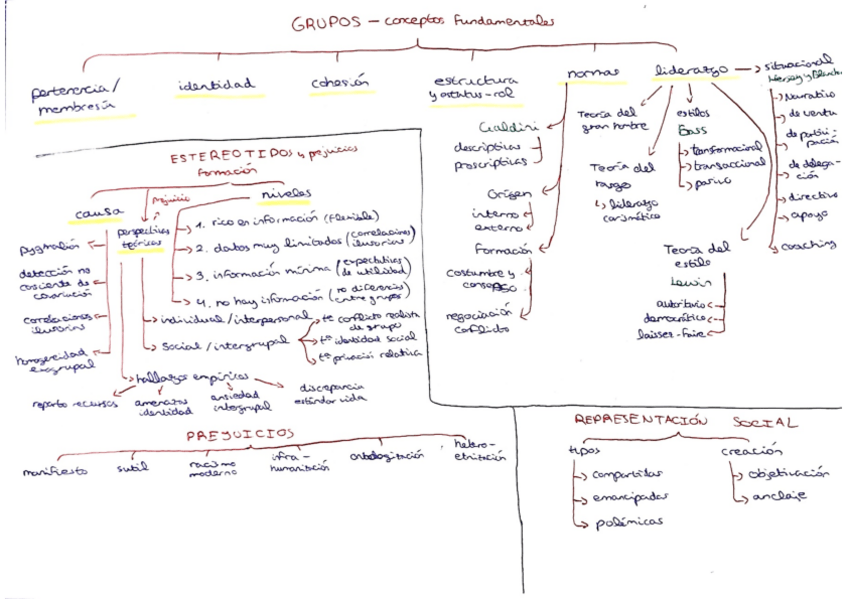 GRUPOS – conceptos fundamentales
pertenencia/
membresía
identidad
cohesión
estructura
y estatus-rol
normas
liderazgo
situacional
Hersey y Blanchard
Narrativo
de venta
de partici-
pación
de delega-
ción
directivo
apoyo
coaching
Cialdini
descriptivas
proscriptivas
Orígen
interno
externo
Formación
costumbre y
negociación
conflicto
Teoría del
gran hombre
Teoría del
rasgo
liderazgo
carismático
estilos
Bass
transformacional
transaccional
pasivo
Teoría del
estilo
Lewin
autoritario
democrático
laisser-faire
ESTEREOTIPOS y prejuicios
Formación
causa
Prejuicio
perspectivas
teóricas
niveles
pygmalión
detección no
consciente de
covariación
correlaciones
ilusorias
homogeneidad
exogrupal
1. rico en información (flexible)
2. datos muy limitados (correlaciones ilusorias)
3. información mínima (expectativas de utilidad)
4. no hay información (no diferencias entre grupos)
individual/interpersonal
social/intergrupal
tª conflicto realista
de grupo
tª identidad social
tª privación relativa
hallazgos empíricos
reparto recursos
amenazas
identidad
ansiedad
intergrupal
discrepancia
estándar vida
PREJUICIOS
manifiesto
sutil
racismo
moderno
infra-
humanización
ontologización
hetero-
etnización
REPRESENTACIÓN SOCIAL
tipos
compartidas
emancipadas
polémicas
creación
objetivación
anclaje